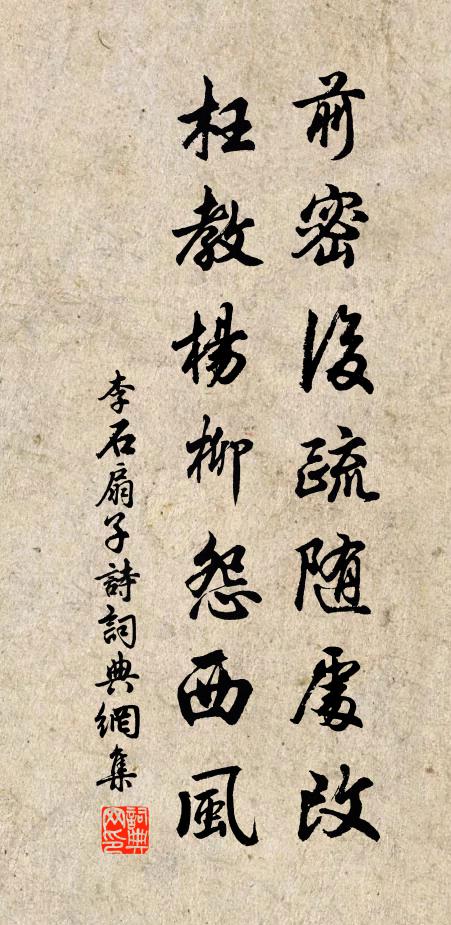 前密後疏隨處改
枉教楊柳怨西風
李石扇子詩詞典網集
詞典網印